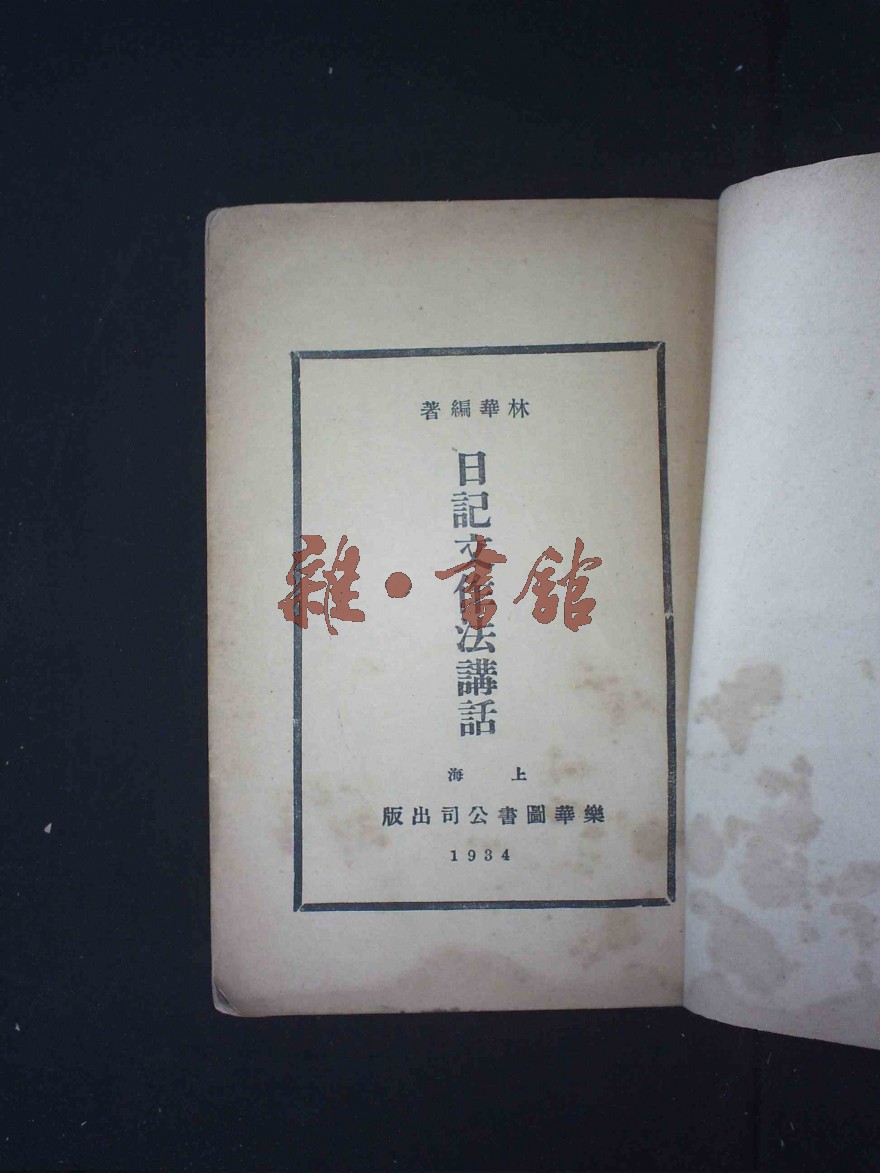 林華編著
日記文作法講話
上海
樂華圖書公司出版
1934
雜·書館